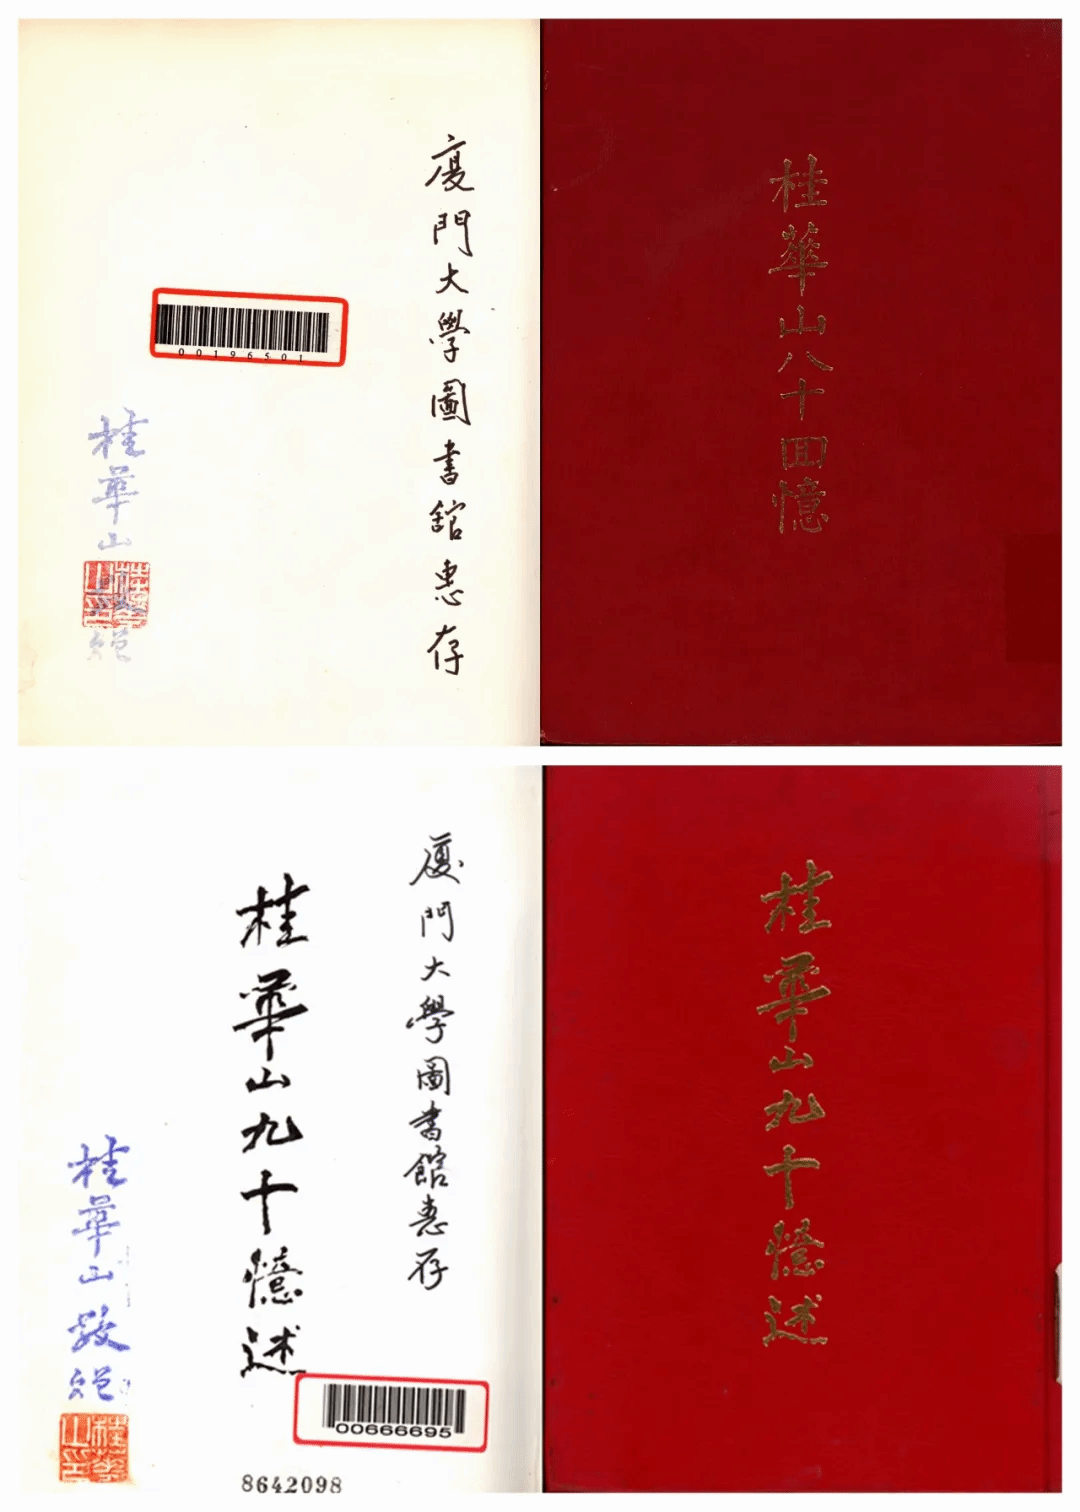 廈門大學圖書舘惠存
00196501
桂華山敬贈
桂華山印
桂華山八十回憶
廈門大學圖書館惠存
桂華山九十憶述
桂華山敬贈
桂華山印
00666695
8642098
桂華山九十憶述